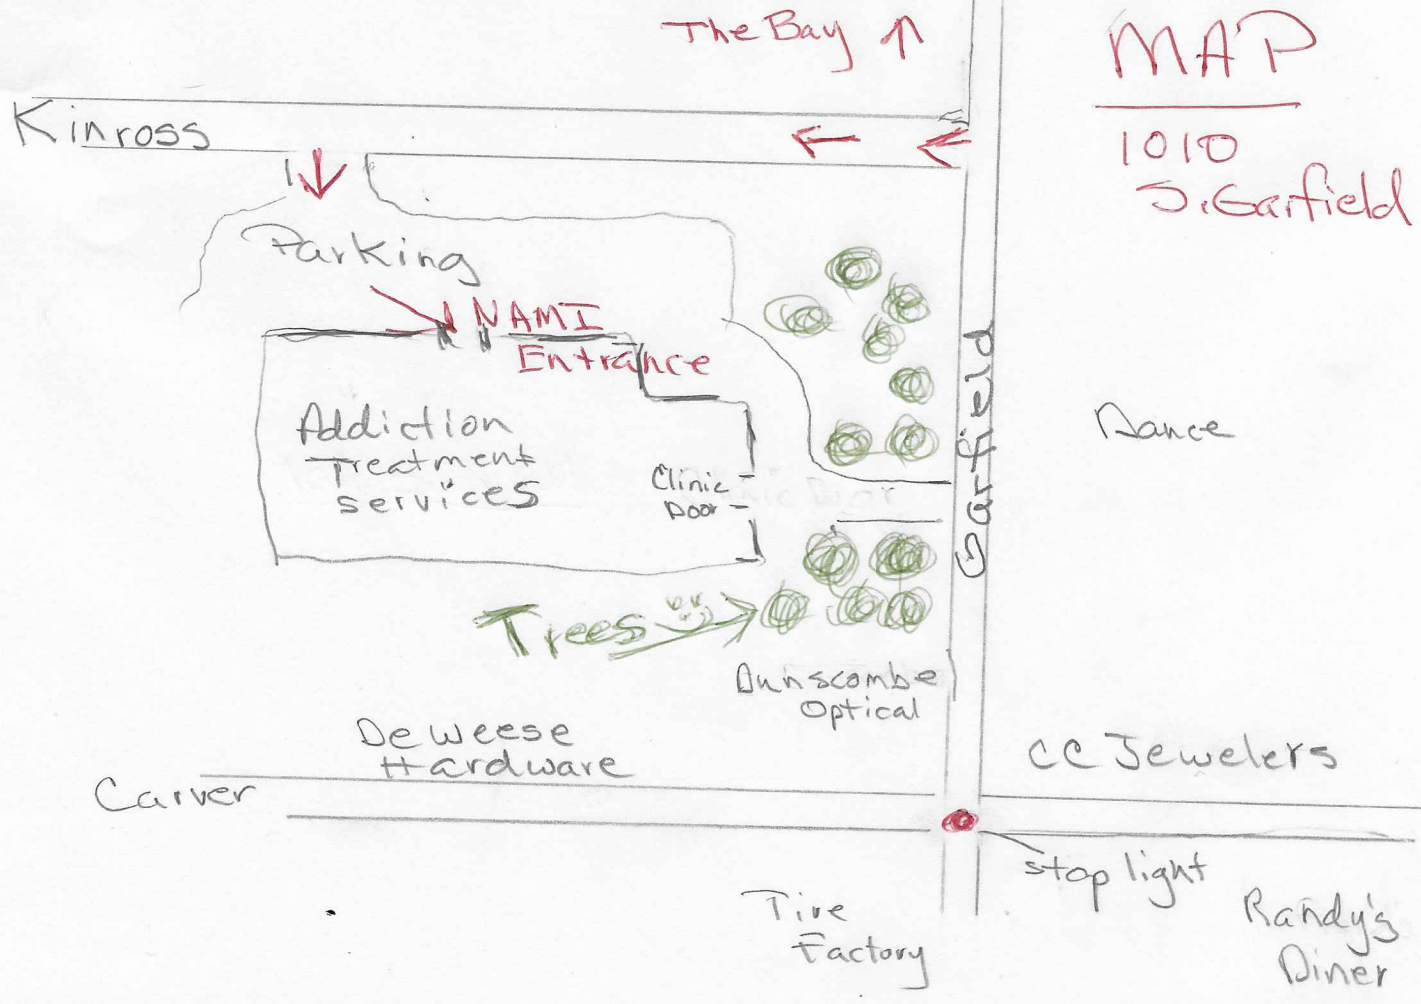 The Bay
MAP
1010
S. Garfield
Kinross
Parking
NAMI
Entrance
Addiction
Treatment
services
Clinic
Door
Garfield
Dance
Trees
Dunscombe
Optical
DeWeese
Hardware
CC Jewelers
Carver
stop light
Tire
Factory
Randy's
Diner